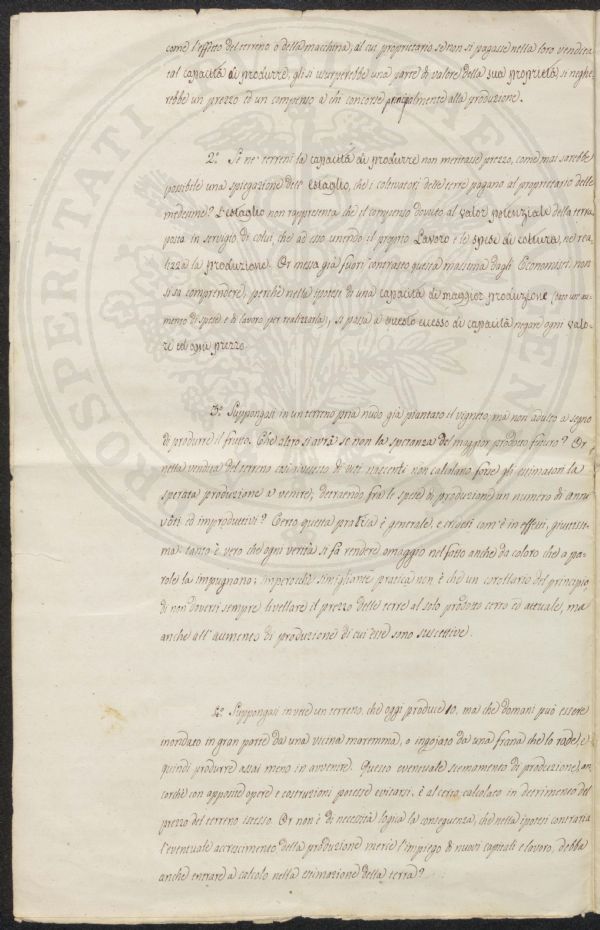 come l'effetto del terreno o della macchina, al cui proprietario se non si pagasse nella loro vendita
tal capacità di produrre, gli si usurperebbe una parte di valore della sua proprietà, si neghe-
rebbe un prezzo ed un compenso a chi concorse principalmente alla produzione.
2.° Se ne' terreni la capacità di produrre non meritasse prezzo, come mai sarebbe
possibile una spiegazione dell' estaglio, che i coltivatori delle terre pagano al proprietario delle
medesime? L'estaglio non rappresenta che il compenso dovuto al valor potenziale della terra
posta in servigio di colui, che ad esso unendo il proprio Lavoro e le spese di coltura, ne rea-
lizza la produzione. Or messa già fuori contrasto questa massima dagli Economisti, non
si sa comprendere, perchè nella ipotesi di una capacità di maggior produzione (con un au-
mento di spese e di lavoro per realizzarla), si possa a questo eccesso di capacità negare ogni valo-
re ed ogni prezzo.
3.° Suppongasi in un terreno pria nudo già piantato il vigneto, ma non adulto a segno
di produrre il frutto. Che altro si avrà se non la speranza del maggior prodotto futuro? Or,
nella vendita del terreno così rivestito di viti nascenti non calcolano forse gli estimatori la
sperata produzione a venire, detraendo fra le spese di produzione un numero di anni
vôti ed improduttivi? Certo questa pratica è generale, e credesi com'è in effetti, giustissi-
ma: tanto è vero che ogni verità si fa rendere omaggio nel fatto anche da coloro che a pa-
role la impugnano; imperocchè simigliante pratica non è che un corollario del principio,
di non doversi sempre livellare il prezzo delle terre al solo prodotto certo ed attuale, ma
anche all'aumento di produzione di cui esse sono suscettive.
4.° Suppongasi invece un terreno, che oggi produce 10, ma che domani può essere
inondato in gran parte da una vicina maremma, o ingojato da una frana che lo rade, e
quindi produrre assai meno in avvenire. Questo eventuale scemamento di produzione, an-
corchè con apposite opere e costruzioni potesse evitarsi, è al certo calcolato in detrimento del
prezzo del terreno istesso. Or non è di necessità logica la conseguenza, che nella ipotesi contraria
l'eventuale accrescimento della produzione mercè l'impiego di nuovi capitali e lavoro, debba
anche entrare a calcolo nella estimazione della terra?
PROSPERITATI